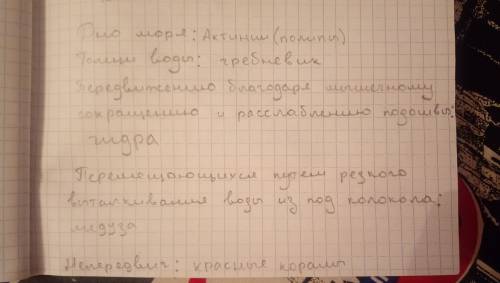 Дно моря: Актинии (полипы)
Толщи воды: гребневик
Передвижению благодаря мышечному
сокращению и расслаблению подошвы:
гидра
Перемещающихся путем резкого
выталкивания воды из под колокола:
медуза
Непередвич: красные коралы